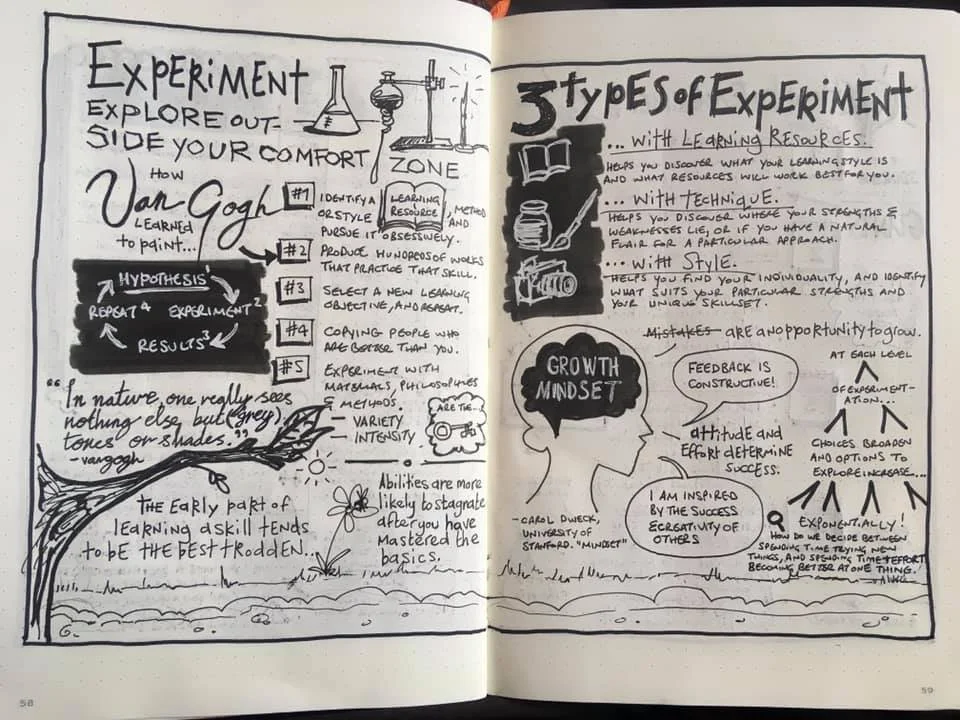 EXPERIMENT
EXPLORE OUT-
SIDE YOUR COMFORT
ZONE
HOW
Van Gogh
LEARNED
to paint...
HYPOTHESIS¹
EXPERIMENT²
RESULTS³
REPEAT⁴
#1 IDENTIFY A LEARNING RESOURCE, METHOD
OR STYLE AND
PURSUE IT OBSESSIVELY.
#2 PRODUCE HUNDREDS OF WORKS
THAT PRACTICE THAT SKILL.
#3 SELECT A NEW LEARNING
OBJECTIVE, AND REPEAT.
#4 COPYING PEOPLE WHO
ARE BETTER THAN YOU.
#5 EXPERIMENT WITH
MATERIALS, PHILOSOPHIES
& METHODS.
— VARIETY
— INTENSITY
ARE THE...
"In nature, one really sees
nothing else but (grey),
tones or shades."
- vangogh
THE Early part of
learning a skill tends
to be THE BEST TRODDEN...
Abilities are more
likely to stagnate
after you have
Mastered the
basics.
58
3 TYPES OF EXPERIMENT
... WITH LEARNING RESOURCES.
HELPS YOU DISCOVER WHAT YOUR LEARNING STYLE IS
AND WHAT RESOURCES WILL WORK BEST FOR YOU.
... WITH TECHNIQUE.
HELPS YOU DISCOVER WHERE YOUR STRENGTHS &
WEAKNESSES LIE, OR IF YOU HAVE A NATURAL
FLAIR FOR A PARTICULAR APPROACH.
... WITH STYLE.
HELPS YOU FIND YOUR INDIVIDUALITY, AND IDENTIFY
WHAT SUITS YOUR PARTICULAR STRENGTHS AND
YOUR UNIQUE SKILLSET.
Mistakes are an opportunity to grow.
GROWTH
MINDSET
FEEDBACK IS
CONSTRUCTIVE!
attitude and
Effort determine
SUCCESS.
I AM INSPIRED
BY THE SUCCESS
& CREATIVITY OF
OTHERS
- CAROL DWECK,
UNIVERSITY OF
STANFORD. "MINDSET"
AT EACH LEVEL
OF EXPERIMENT-
ATION...
CHOICES BROADEN
AND OPTIONS TO
EXPLORE INCREASE...
EXPONENTIALLY!
HOW DO WE DECIDE BETWEEN
SPENDING TIME TRYING NEW
THINGS, AND SPENDING TIME & EFFORT
BECOMING BETTER AT ONE THING.
59